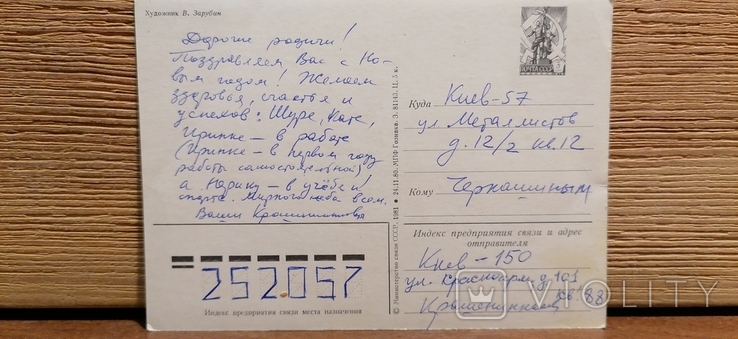 Художник В. Зарубин
Дорогие родичи!
Поздравляем Вас с Но-
вым годом! Желаем
здоровья, счастья и
успехов: Шуре, Кате,
Иринке – в работе
(Иринке – в первом году
работы самостоятельной)
а Марику – в учёбе и
спорте. Мирного неба всем.
Ваши
ПОЧТА СССР
Куда Киев-57
ул. Металлистов
д. 12/2 кв. 12
Кому
Индекс предприятия связи и адрес
отправителя
Киев – 150
ул. Красноарм. д. 101
кв. 88
252057
Индекс предприятия связи места назначения
© Министерство связи СССР, 1981 ♦ 24.11.80. МПФ Гознака. З. 81143. Ц. 5 к.
VIOLITY